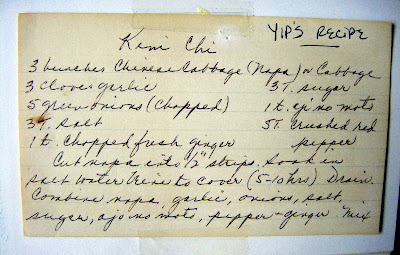 YIP'S RECIPE
Kim Chi
3 bunches Chinese Cabbage (Napa) or Cabbage
3 cloves garlic 3 T. sugar
5 green onions (Chopped) 1 t. aji no moto
3 T. salt 5 T. crushed red
1 t. chopped fresh ginger pepper
Cut napa into 1/2" strips. Soak in
salt water brine to cover (5-10 hrs) Drain.
Combine napa, garlic, onions, salt,
sugar, ajo no moto, pepper + ginger. Mix